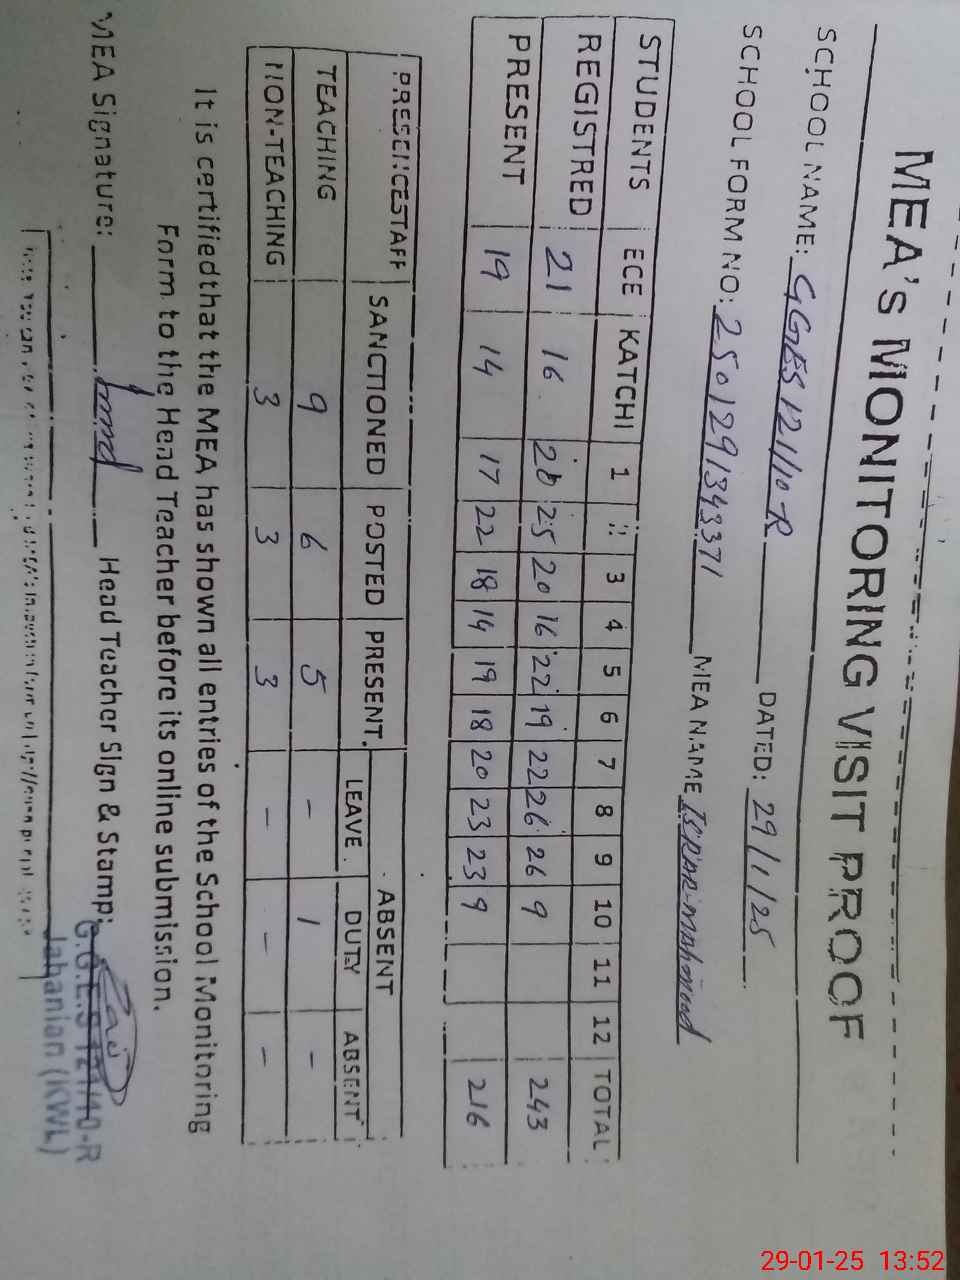 MEA'S MONITORING VISIT PROOF
SCHOOL NAME: GGES 121/10-R DATED: 29/1/25
SCHOOL FORM NO: 2501291343371 MEA NAME ISRAR Mahmood
STUDENTS ECE KATCHI 1 2 3 4 5 6 7 8 9 10 11 12 TOTAL
REGISTRED 21 16 20 25 20 16 22 19 22 26 26 9 243
PRESENT 19 14 17 22 18 14 19 18 20 23 23 9 216
PRESENCESTAFF SANCTIONED POSTED PRESENT ABSENT
LEAVE DUTY ABSENT
TEACHING 9 6 5 - 1 -
NON-TEACHING 3 3 3 - - -
It is certifiedthat the MEA has shown all entries of the School Monitoring
Form to the Head Teacher before its online submission.
MEA Signature: Head Teacher Sign & Stamp:
G.G.E.S 121/10-R
Jahanian (KWL)
29-01-25 13:52